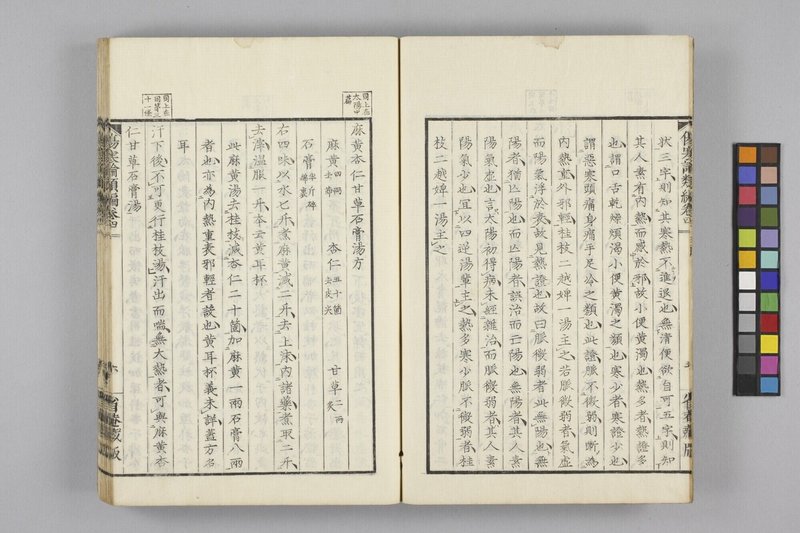 狀三字則知其寒熱不進退也無清便欲自可五字則知
其人素有内熱而感於邪故小便黄濁也熱多者熱證多
也謂口舌乾燥煩渇小便黄濁之類也寒少者寒證少也
謂惡寒頭痛身痛手足冷之類也此證脈不微弱則斷為
内熱重外邪輕桂枝二越婢一湯主之若脈微弱者氣虚
而陽氣浮於表故見熱證也故曰脈微弱者此無陽也無
陽者猶亡陽也而亡陽者誤治而亡陽也無陽者其人素
陽氣虚也言太陽初得病未經雜治而脈微弱者其人素
陽氣少也宜以四逆湯輩主之熱多寒少脈不微弱者桂
枝二越婢一湯主之
傷寒論類編卷四
省菴藏版
麻黄杏仁甘草石膏湯方
麻黄四兩去節 杏仁五十箇去皮尖 甘草二兩炙
石膏半斤碎綿裏
右四味以水七升煮麻黄減二升去上沫内諸藥煮取二升
去滓温服一升本云黄耳杯
此麻黄湯去桂枝減杏仁二十箇加麻黄一兩石膏八兩
者也亦為内熱重表邪輕者設也黄耳杯義未詳蓋方名
耳
汗下後不可更行桂枝湯汗出而喘無大熱者可與麻黄杏
仁甘草石膏湯
傷寒論類編卷四
省菴藏版